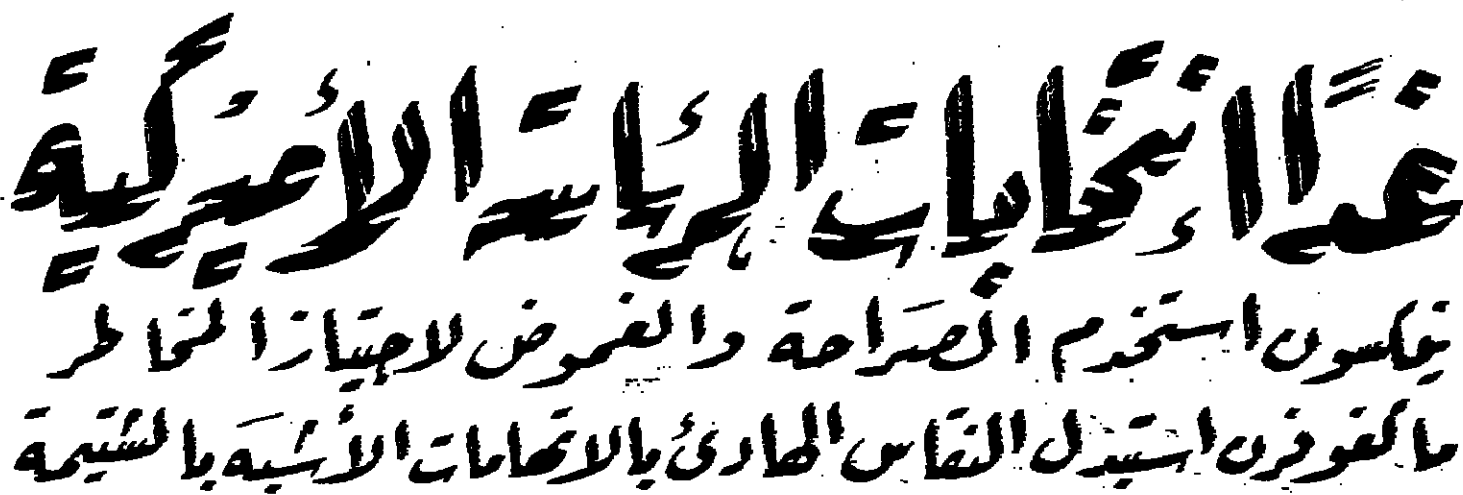 غدًا انتخابات الرئاسة الأميركية
نيكسون استخدم الصراحة والغموض لاجتياز المخاطر
ماكغوفرن استبدل النقاش الهادئ بالاتهامات الأشبه بالشتيمة